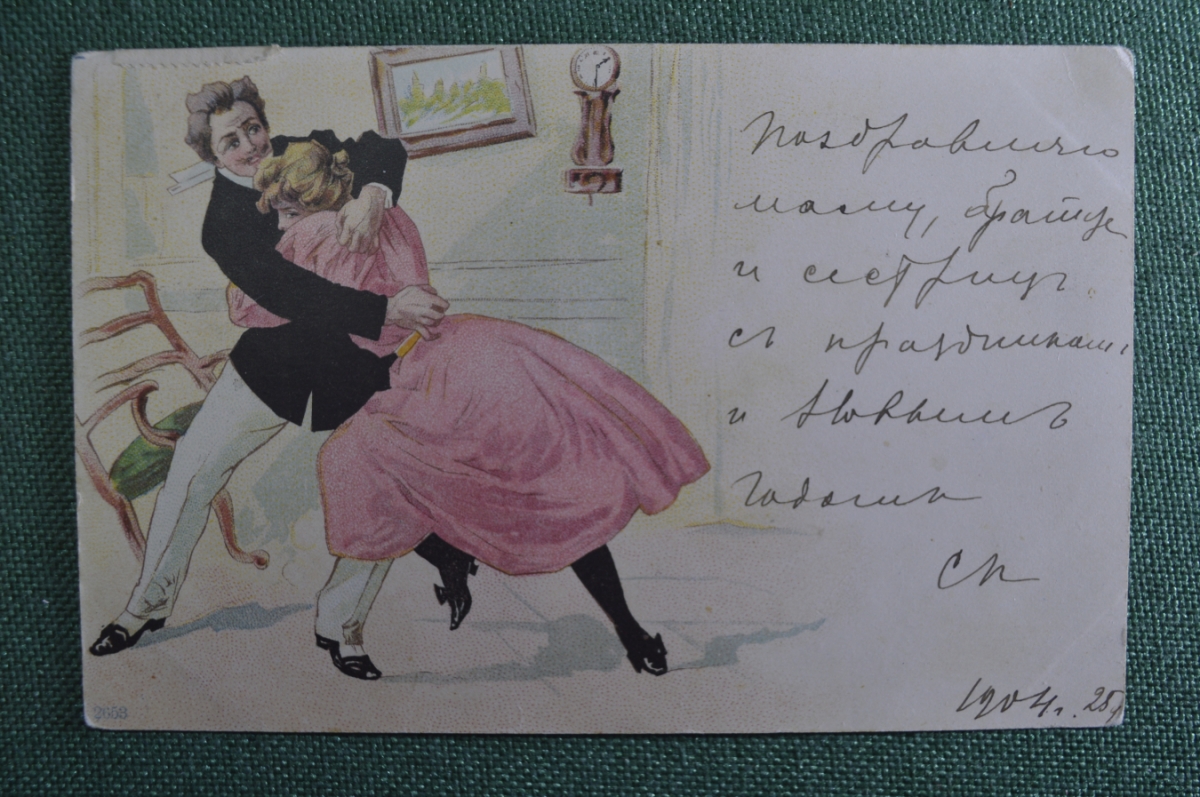 Поздравляю
маму, братца
и сестрицу
съ праздниками
и Новымъ
годомъ
СК
1904 г. 25
2658